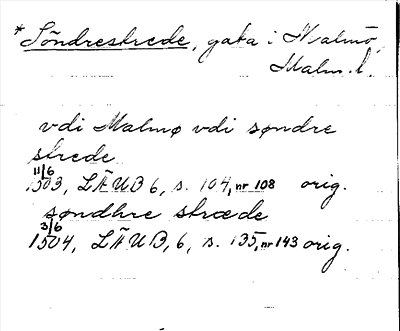 *Söndrestrede, gata i Malmö,
Malm. l.
vdi Malmø vdi søndre
strede
11/6
1503, LÄUB 6, s. 104, nr 108 orig.
søndhre stræde
3/6
1504, LÄUB, 6, s. 135, nr 143 orig.